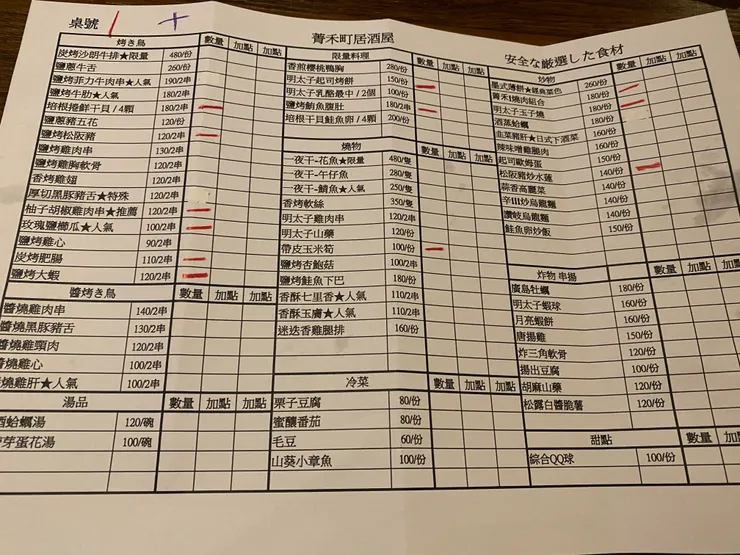 桌號 1 +
菁禾町居酒屋
安全な厳選した食材
烤き鳥 數量 加點 加點
炭烤沙朗牛排★限量 480/份
鹽蔥牛舌 260/份
鹽烤菲力牛肉串★人氣 190/2串
鹽烤牛肋★人氣 190/2串
培根捲鮮干貝/4顆 220/2串
鹽蔥豬五花 120/份
鹽烤松阪豬 120/2串
鹽烤雞肉串 130/2串
鹽烤雞胸軟骨 120/2串
香烤雞翅 120/2串
厚切黑豚豬舌★特殊 120/2串
柚子胡椒雞肉串★推薦 120/2串
玫瑰鹽櫛瓜★人氣 100/2串
鹽烤雞心 90/2串
炭烤肥腸 110/2串
鹽烤大蝦 120/2串
醬烤き鳥 數量 加點 加點
醬燒雞肉串 140/2串
醬燒黑豚豬舌 130/2串
醬燒雞頸肉 120/2串
醬燒雞心 100/2串
醬燒雞肝★人氣 100/2串
湯品 數量 加點 加點
酒蛤蠣湯 120/碗
芽蛋花湯 100/碗
限量料理 數量 加點 加點
香煎櫻桃鴨胸 280/份
明太子起司烤餅 150/份
明太子乳酪最中/2個 100/份
鹽烤鮪魚腹肚 180/份
培根干貝鮭魚卵/4顆 200/份
燒物 數量 加點 加點
一夜干-花魚★限量 480/隻
一夜干-午仔魚 280/隻
一夜干-鯖魚★人氣 250/隻
香烤軟絲 350/隻
明太子雞肉串 120/2串
明太子山藥 120/份
帶皮玉米筍 100/份
鹽烤杏鮑菇 100/2串
鹽烤鮭魚下巴 180/份
香酥七里香★人氣 110/2串
香酥玉膚★人氣 110/2串
迷迭香雞腿排 160/份
冷菜 數量 加點 加點
栗子豆腐 80/份
蜜釀番茄 80/份
毛豆 60/份
山葵小章魚 100/份
炒物 數量 加點 加點
墨式薄餅★經典菜色 260/份
菁禾町燒肉組合 180/份
明太子玉子燒 180/份
酒蒸蛤蠣 160/份
韭菜豬肝★日式下酒菜 160/份
辣味噌雞腿肉 160/份
起司歐姆蛋 150/份
松阪豬炒水蓮 140/份
蒜香高麗菜 140/份
辛川炒烏龍麵 140/份
讚岐烏龍麵 140/份
鮭魚卵炒飯 150/份
炸物 串揚 數量 加點 加點
廣島牡蠣 180/份
明太子蝦球 160/份
月亮蝦餅 160/份
唐揚雞 150/份
炸三角軟骨 120/份
揚出豆腐 100/份
胡麻山藥 120/份
松露白醬脆薯 120/份
甜點 數量 加點 加點
綜合QQ球 100/份